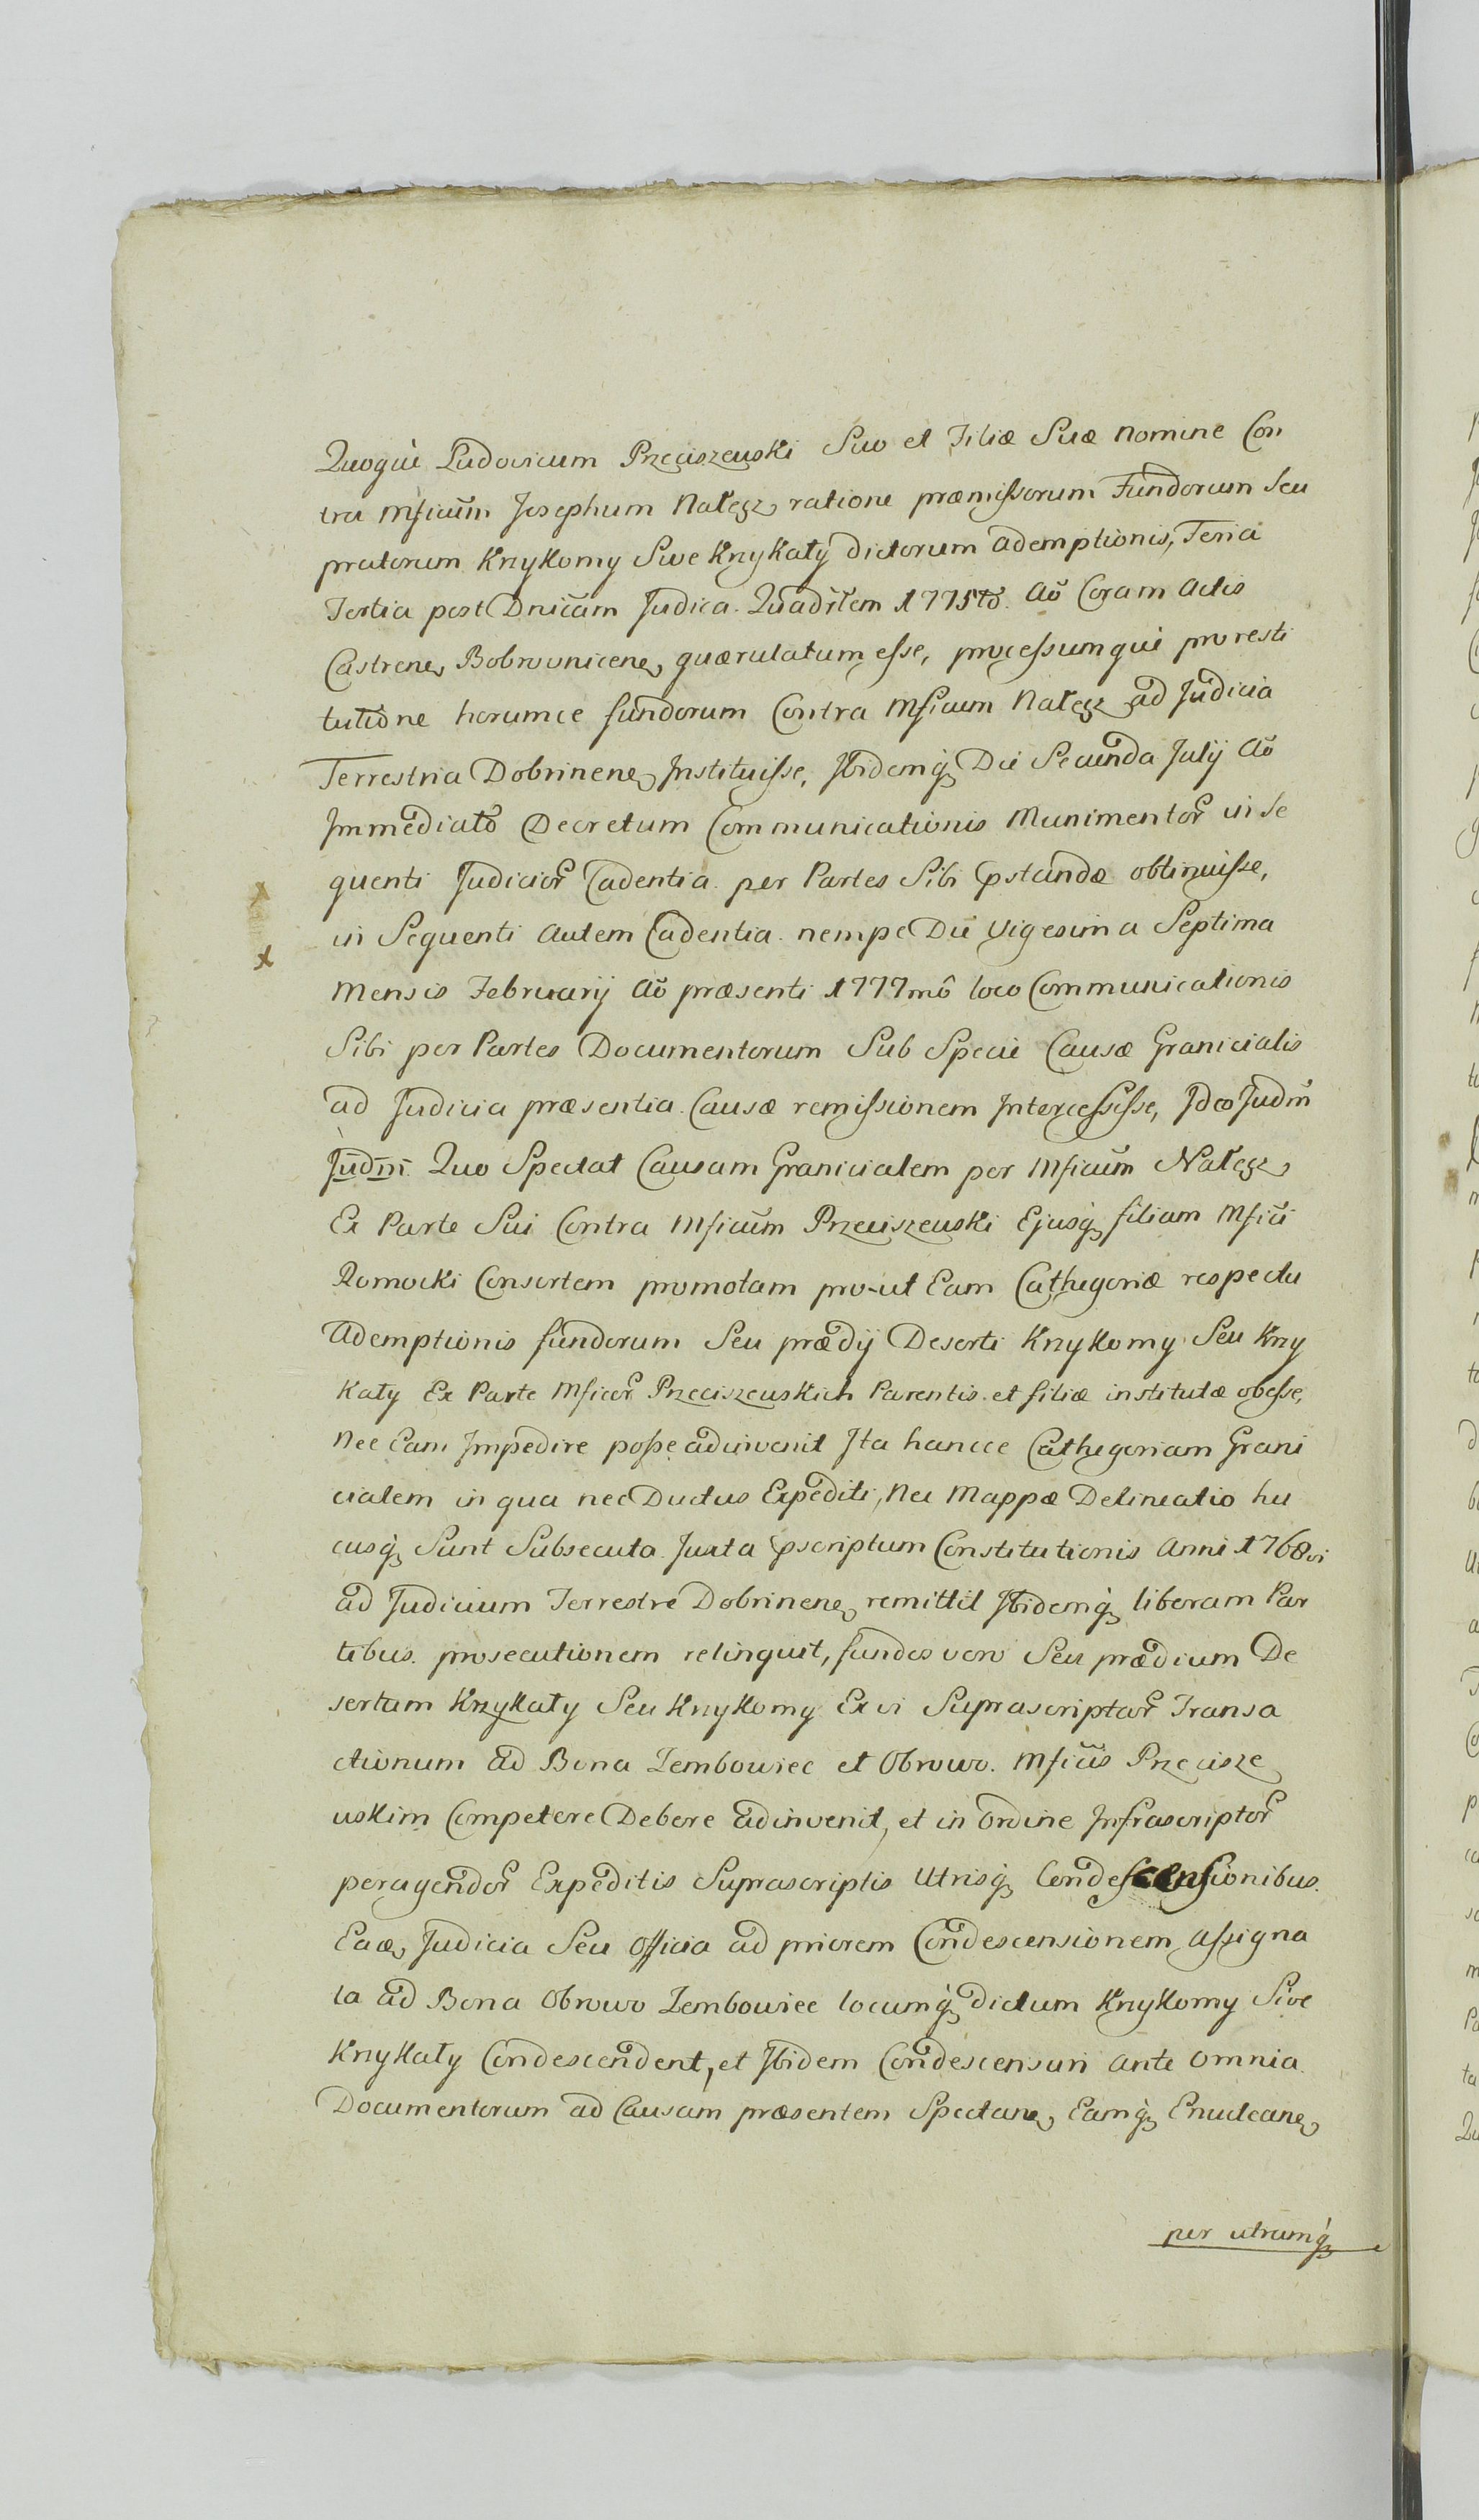 Quoque Ludovicum Przeciszewski Suo et Filiæ Suæ nomine Con
tra Mficum Josephum Nałęcz, ratione præmissorum Fundorum Seu
pratorum Krzykomy Sive Krzykały dictorum ademptionis, Feria
Tertia post Dnicam Judica Quadrlem 1775to Ao Coram Actis
Castrens, Bobrovnicens, quærulatum esse, processumque pro resti
tutione horumce fundorum Contra Mficum Nałęcz ad Judicia
Terrestria Dobrinens, Instituisse, Ibidemq Die Secunda July Ao
Immediato Decretum Communicationis Munimentor in Se
quenti Judicior Cadentia per Partes Sibi præstandæ obtinuisse,
in Sequenti Autem Cadentia nempe Die Vigesima Septima
Mensis February Ao præsenti 1777mo loco Communicationis
Sibi per Partes Documentorum Sub Specie Causæ Granicialis
ad Judicia præsentia Causæ remissionem Intercessisse, Ideo Judm
Judm Quo Spectat Causam Granicialem per Mficum Nałęcz,
Ex Parte Sui Contra Mficum Przeciszewski Ejusq filiam Mfici
Romocki Consortem promotam pro-ut Eam Cathegoriæ respectu
Ademptionis fundorum Seu prædij Deserti Krzykomy Seu Krzy
kały Ex Parte Mficor Przeciszewskich Parentis et filiæ institutæ obesse,
Nec Eam Impedire posse adinvenit Ita hancce Cathegoriam Grani
cialem in qua nec Ductus Expediti, Nec Mappæ Delineatio hu
cusq Sunt Subsecuta Juxta præscriptum Constitutionis Anni 1768vi
ad Judicium Terrestre Dobrinens, remittit Ibidemq liberam Par
tibus prosecutionem relinquit, fundos vero Seu prædium De
sertum Krzykały Seu Krzykomy Ex vi Suprascriptar Transa
ctionum ad Bona Zembowiec et Obrowo Mficis Przecisze
wskim Competere Debere adinvenit, et in Ordine Infrascriptor
peragendor Expeditis Suprascriptis Utrisq Condescensionibus
Eade, Judicia Seu Officia ad priorem Condescensionem Assigna
ta ad Bona Obrowo Zembowiec locumq dictum Krzykomy Sive
Krzykały Condescendent, et Ibidem Condescensuri Ante Omnia
Documentorum ad Causam præsentem Spectan, Eamq Enuclean,
per utramq